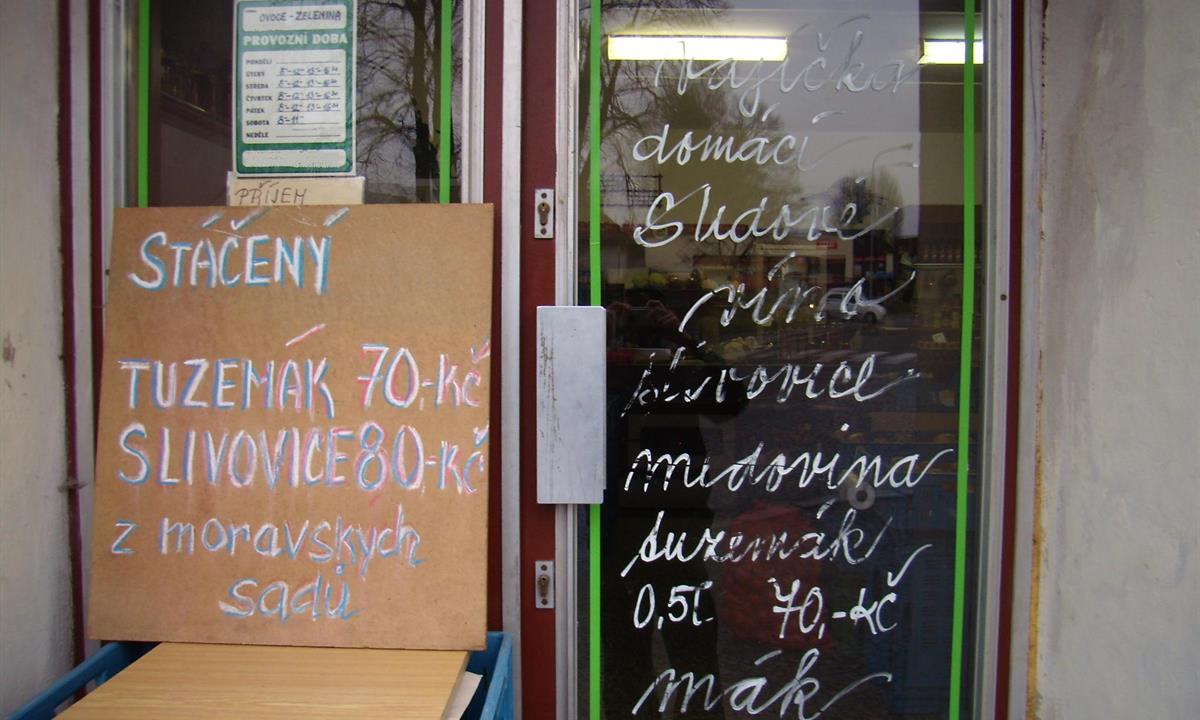 OVOCE - ZELENINA
PROVOZNÍ DOBA
PONDĚLÍ
ÚTERÝ
STŘEDA
ČTVRTEK
PÁTEK
SOBOTA 8-11
NEDĚLE
PŘÍJEM
STÁČENÝ
TUZEMÁK 70,-KČ
SLIVOVICE 80,-KČ
z moravských
sadů
Vajíčka
domácí
Sudové
víno
slivovice
medovina
tuzemák
0,5l 70,-KČ
mák